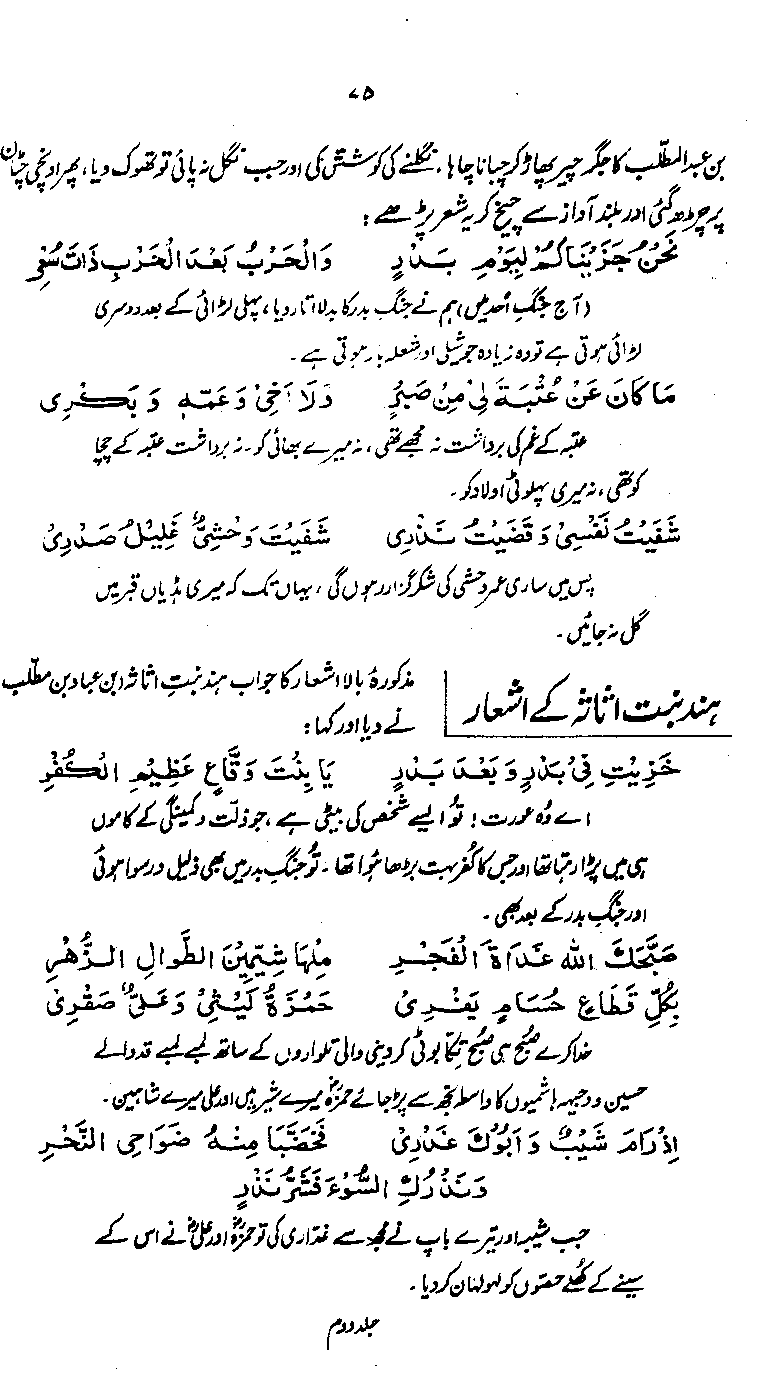 ۷۵
بن عبدالمطلّب کا جگر چیر پھاڑ کر چبانا چاہا، نگلنے کی کوشش کی اور جب نگل نہ پائی تو تھوک دیا، پھر اونچی چٹان
پر چڑھ گئی اور بلند آواز سے چیخ کر یہ شعر پڑھے:
نَحْنُ جَزَيْنَاكُمْ لِيَوْمِ بَدْرٍ وَالْحَرْبُ بَعْدَ الْحَرْبِ ذَاتُ سُعْرٍ
(آج جنگِ اُحد میں) ہم نے جنگِ بدر کا بدلا اتار دیا، پہلی لڑائی کے بعد دوسری
لڑائی ہوتی ہے تو وہ زیادہ جوشیلی اور شعلہ بار ہوتی ہے۔
مَا كَانَ عَنْ عُتْبَةَ لِيْ مِنْ صَبْرٍ وَلَا اَخِيْ وَعَمِّهٖ وَبَكْرِى
عتبہ کے غم کی برداشت نہ مجھے تھی، نہ میرے بھائی کو۔ نہ برداشت عتبہ کے چچا
کو تھی، نہ میری پہلوٹی اولاد کو۔
شَفَيْتُ نَفْسِىْ وَقَضَيْتُ نَذْرِى شَفَيْتَ وَحْشِىُّ غَلِيْلَ صَدْرِىْ
پس میں ساری عمر وحشی کی شکرگزار رہوں گی، یہاں تک کہ میری ہڈیاں قبر میں
گل نہ جائیں۔
ہند بنت اثاثہ کے اشعار
مذکورۂ بالا اشعار کا جواب ہند بنتِ اثاثہ ابن عباد بن مطلّب
نے دیا اور کہا:
خَزِيْتِ فِىْ بَدْرٍ وَبَعْدَ بَدْرٍ يَا بِنْتَ وَقَّاعٍ عَظِيْمِ الْكُفْرِ
اے وہ عورت! تُو ایسے شخص کی بیٹی ہے، جو ذلّت و کمینگی کے کاموں
ہی میں پڑا رہتا تھا اور جس کا کُفر بہت بڑھا ہُوا تھا۔ تُو جنگِ بدر میں بھی ذلیل و رسوا ہوئی
اور جنگِ بدر کے بعد بھی۔
صَبَّحَكِ اللهُ غَدَاةَ الْفَجْرِ مِلْهَاشِمِيِّيْنَ الطِّوَالِ الزُّهْرِ
بِكُلِّ قَطَّاعٍ حُسَامٍ يَفْرِىْ حَمْزَةُ لَيْثِىْ وَعَلِىٌّ صَقْرِىْ
خدا کرے صبح ہی صبح تِکّا بوٹی کر دینے والی تلواروں کے ساتھ لمبے لمبے قد والے
حسین و وجیہہ ہاشمیوں کا واسطہ تجھ سے پڑ جائے حمزہؓ میرے شیر ہیں اور علی میرے شاہین۔
اِذْ رَامَ شَيْبٌ وَاَبُوْكِ غَدْرِىْ فَخَضَّبَا مِنْهُ ضَوَاحِى النَّحْرِ
وَنَذْرُكِ السُّوْءَ فَشَرُّ نَذْرٍ
جب شیبہ اور تیرے باپ نے مجھ سے غدّاری کی تو حمزہؓ اور علیؓ نے اس کے
سینے کے کُھلے حصّوں کو لہولہان کر دیا۔
جلد دوم